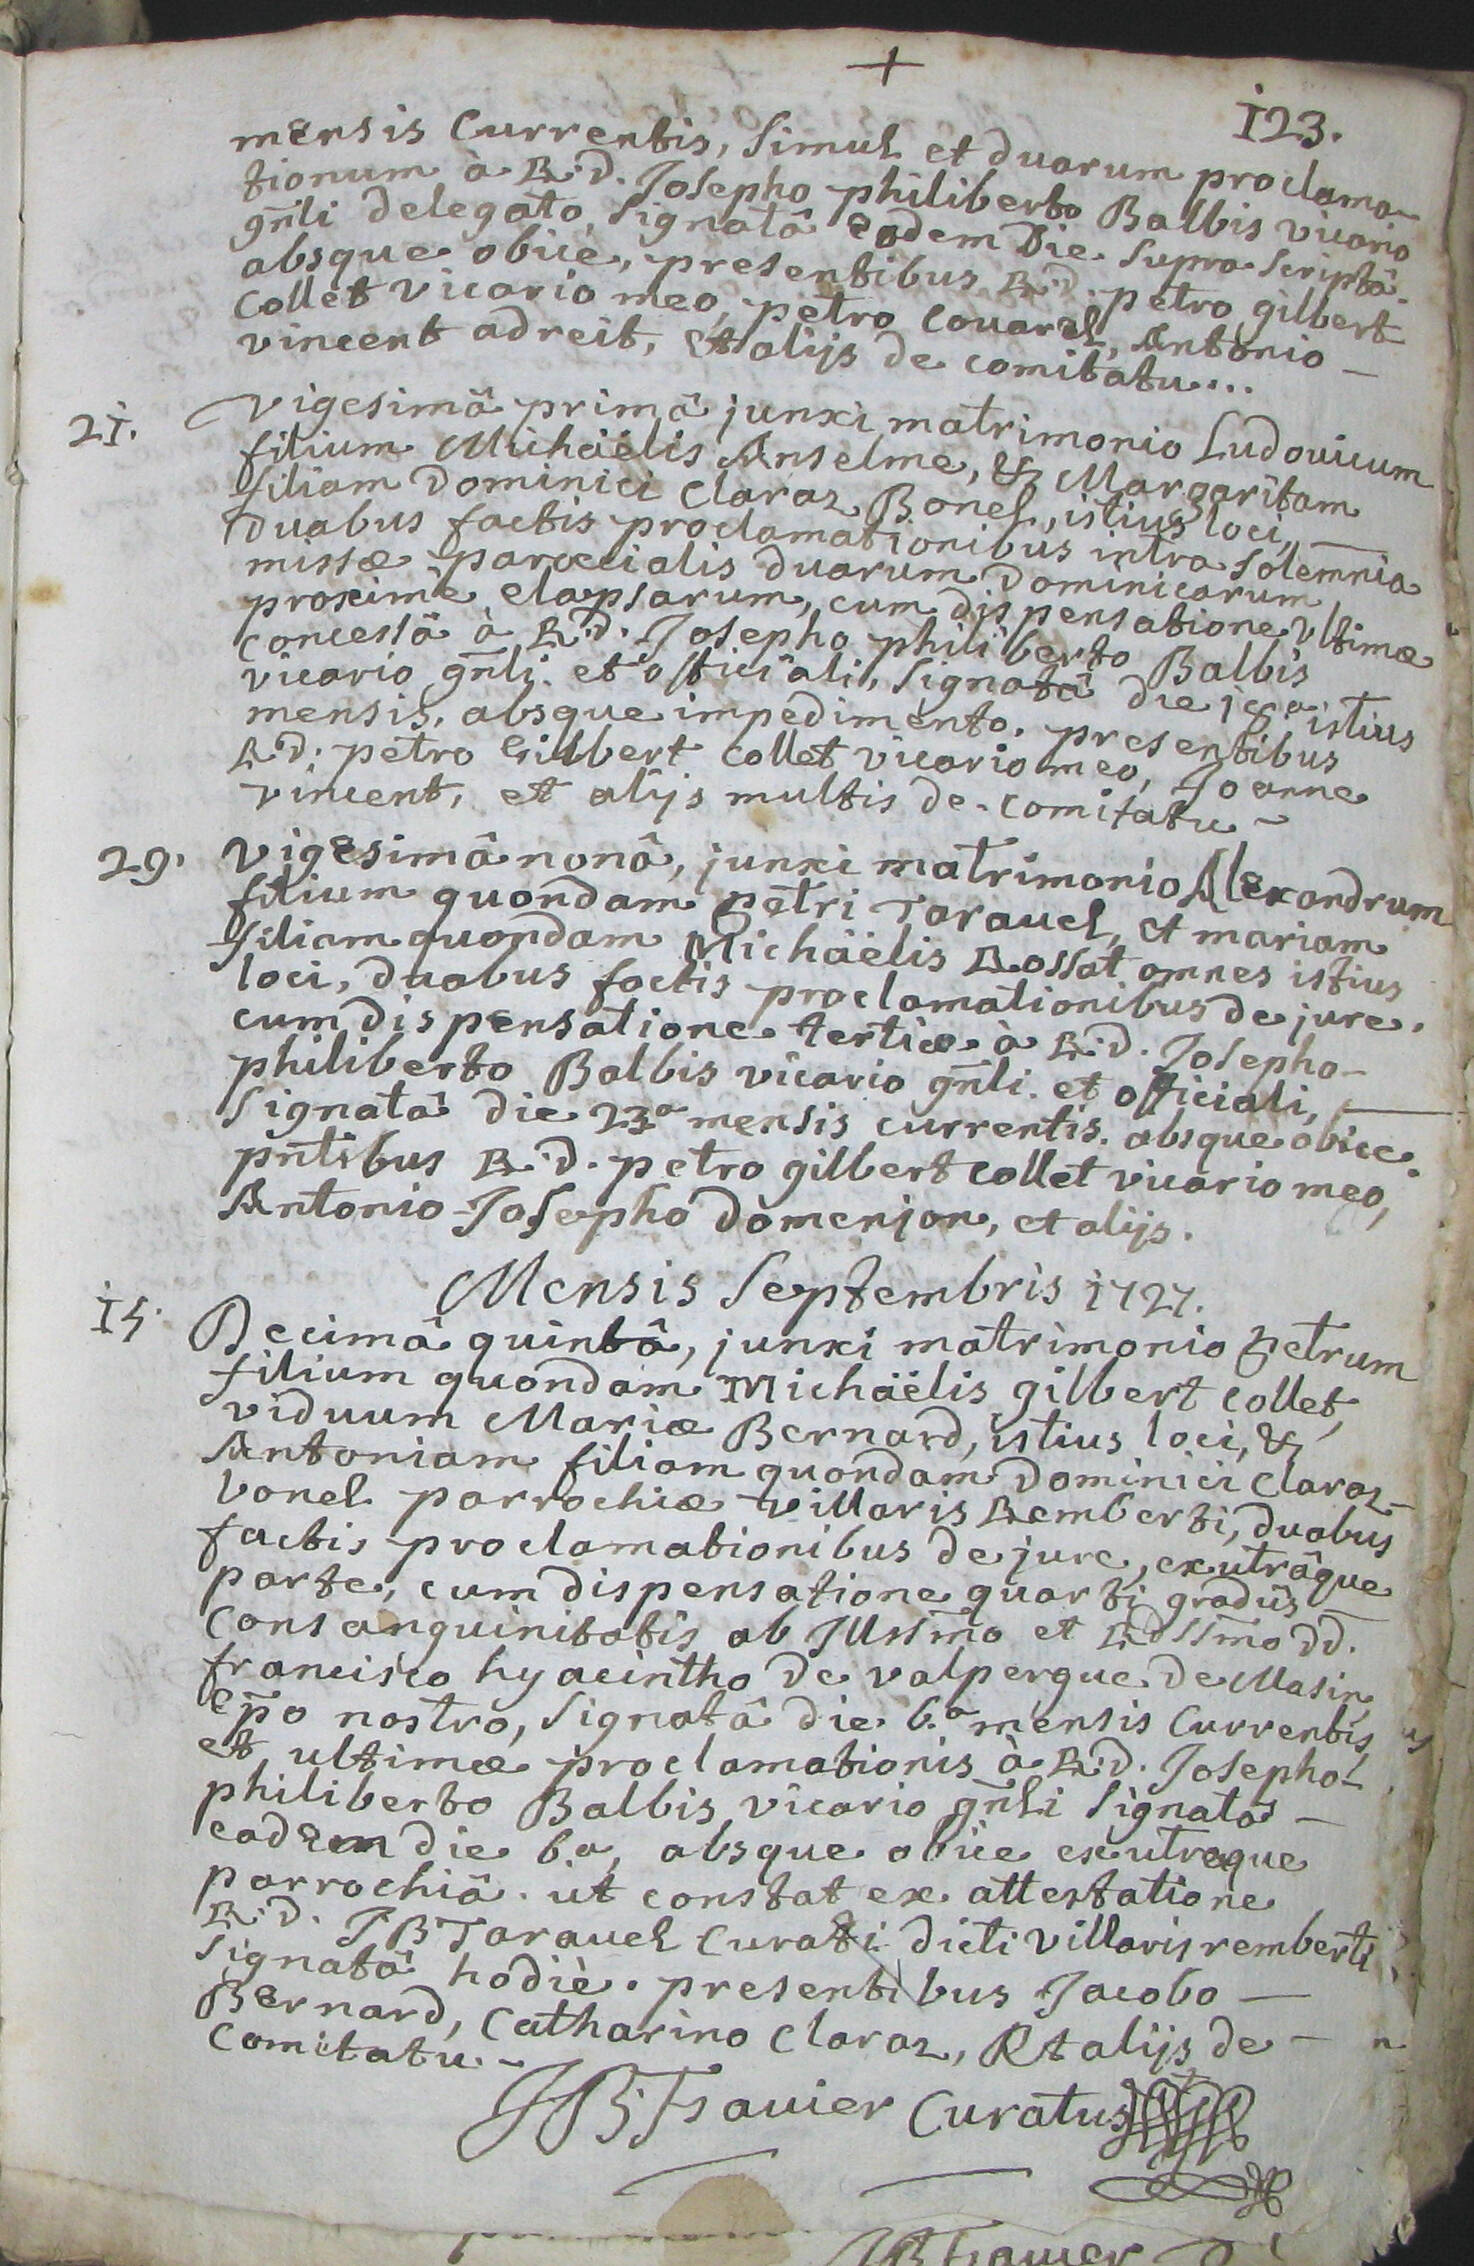 +
123.
mensis Currentis, simul et duarum proclama-
tionum à R.d. Josepho philiberto Balbis vicario
gn̄li delegato, signatâ eodem Die supra scriptâ.
absque obiie, presentibus R.d. petro gilbert
Collet vicario meo, petro Couarel, Antonio -
vincent adreit, et alijs de comitatu...
21. vigesimâ primâ junxi matrimonio Ludovicum
filium Michaëlis Anselme, & Margaritam
filiam Dominici Claraz Bonel, istius loci, -
duabus factis proclamationibus intra solemnia
missæ paroecialis duarum Dominicarum
proxime elapsarum, cum dispensatione ultimæ
concessâ à R.d. Josepho philiberto Balbis
vicario gn̄li. et officiali, signatâ die istius
mensis, absque impedimento. presentibus
R.d. petro Gilbert Collet vicario meo, Joanne
vincent, et alijs multis de comitatu -
29. vigesimâ nonâ, junxi matrimonio Alexandrum
filium quondam petri Taravel, et mariam
filiam quondam Michaëlis Rossat omnes istius
loci, duabus factis proclamationibus de jure.
cum dispensatione tertiæ à R.d. Josepho -
philiberto Balbis vicario gn̄li. et officiali, -
signatâ die 23a mensis currentis. absque obice.
pn̄tibus R.d. petro gilbert collet vicario meo,
Antonio Josepho Domenjon, et alijs.
Mensis Septembris 1727.
15. Decimâ quintâ, junxi matrimonio petrum
filium quondam Michaëlis gilbert collet,
viduum Mariæ Bernard, istius loci, &
Antoniam filiam quondam Dominici Claraz -
bonel parrochiæ villaris Remberti, duabus
factis proclamationibus de jure, ex utrâque
parte, cum dispensatione quarti gradûs
Consanguinitatis ab Illsm̄o et Rdssm̄o dd.
francisco hyacintho de valpergue de Masin,
ep̄o nostro, signatâ die 6.a mensis Currentis,
et ultimæ proclamationis à R.d. Josepho -
philiberto Balbis, vicario gn̄li signatâ -
eadem die 6.a, absque obiie ex utraque
parrochiâ. ut constat ex attestatione
R.d. J B Taravel Curati dicti villaris remberti
signatâ hodiè. presentibus Jacobo -
Bernard, Catharino Claraz, Et alijs de -
Comitatu. -
JB: Travier Curatus